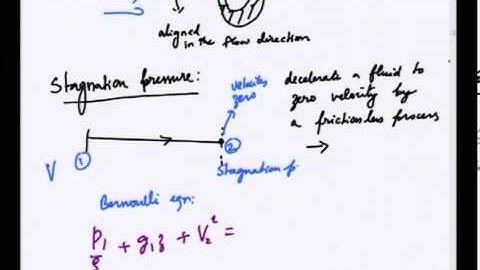 aligned
in the flow direction
Stagnation pressure:
velocity
zero
decelerate a fluid to
zero velocity by
a frictionless process
1
2
V
Stagnation p
Bernoulli eqn:
p1/ρ + g1z + V2² =